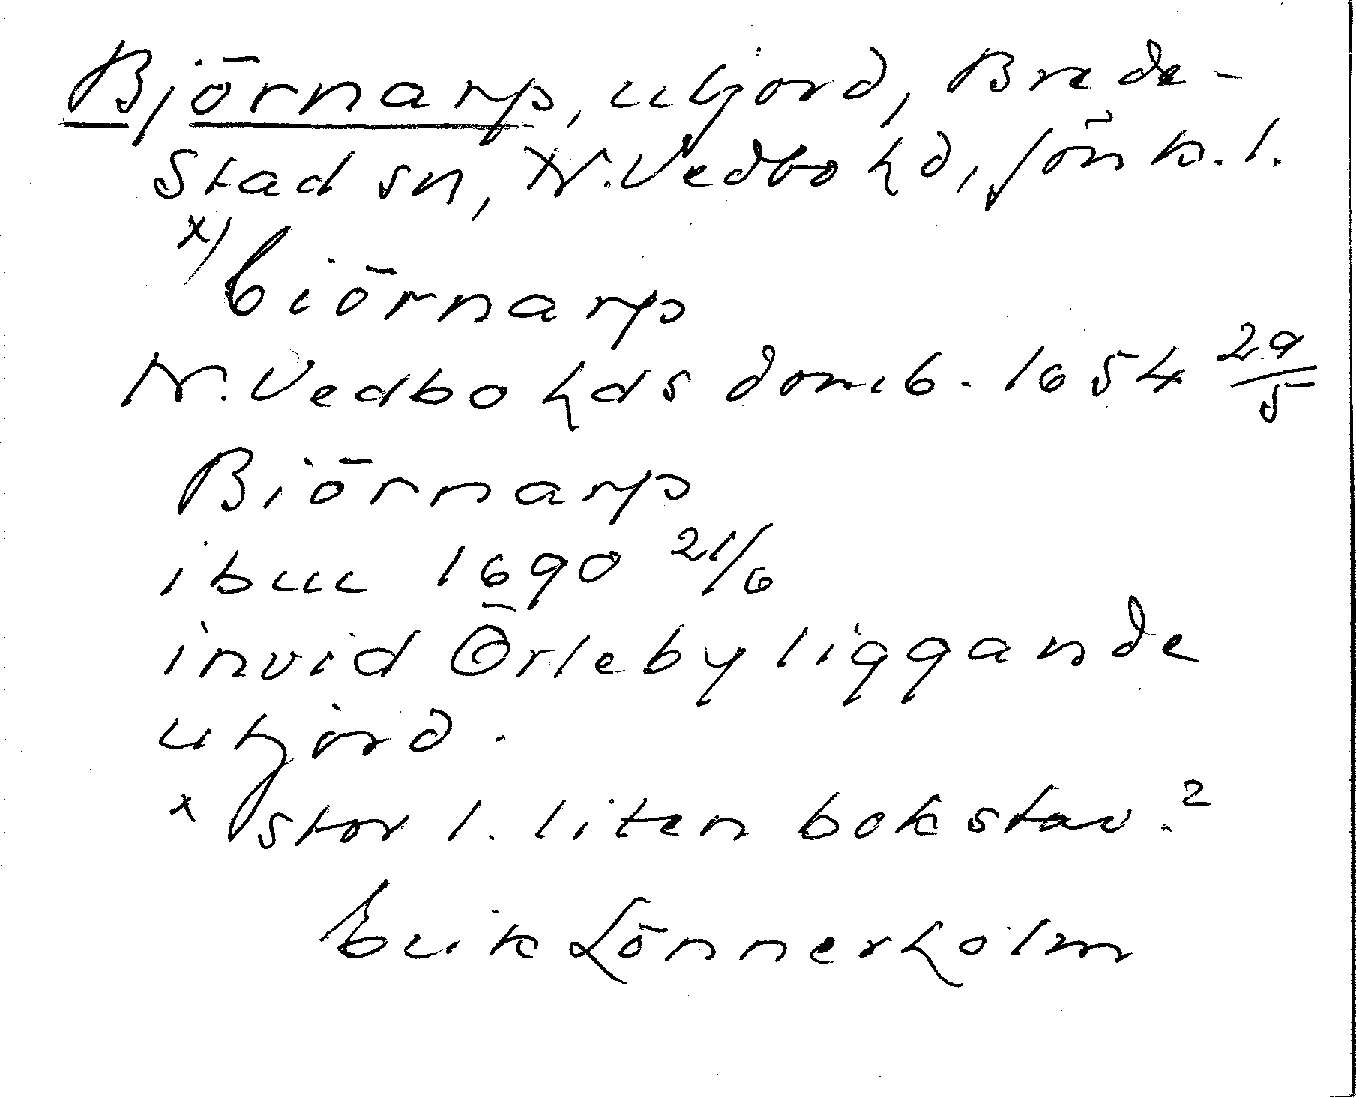 Björnarp, utjord, Brede-
stad sn, N. Vedbo hd, Jönk. l.
x) biörnarp
N. Vedbo hds domb. 1654 29/5
Biörnarp
ibm 1690 21/6
invid Örleby liggande
utjord.
x stor l. liten bokstav?
Erik Lönnerholm